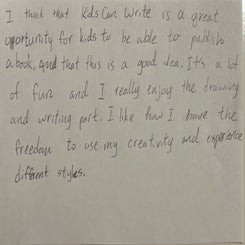 I think that Kids Can Write is a great
opportunity for kids to be able to publish
a book, and that this is a good idea. It's a lot
of fun and I really enjoy the drawing
and writing part. I like how I have the
freedom to use my creativity and experience
different styles.